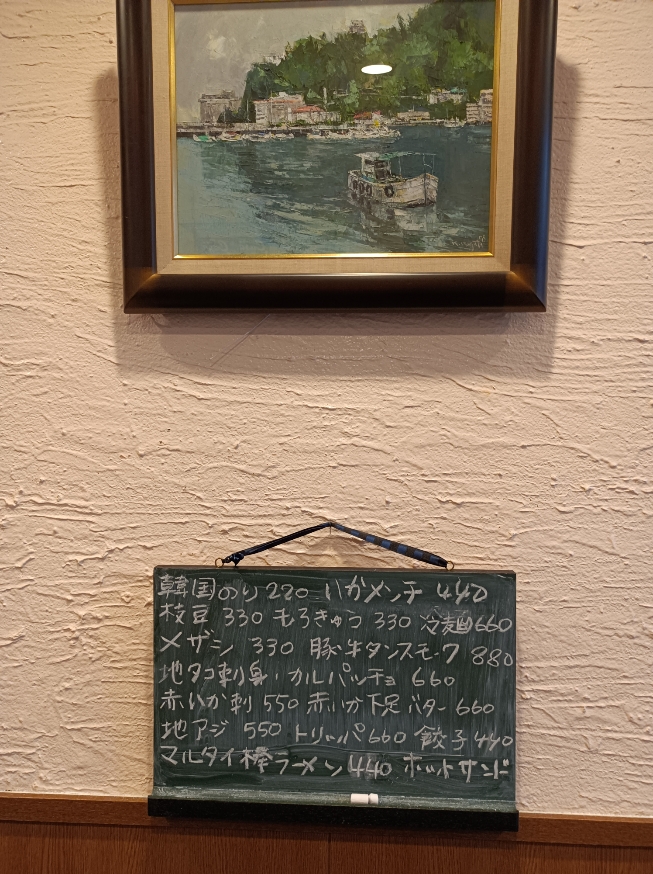 韓国のり 220 いかメンチ 440
枝豆 330 もろきゅう 330 冷麺 660
メザシ 330 豚・牛タンスモーク 880
地タコ刺身・カルパッチョ 660
赤いか刺 550 赤いか下足バター 660
地アジ 550 トリッパ 660 餃子 440
マルタイ棒ラーメン 440 ホットサンド